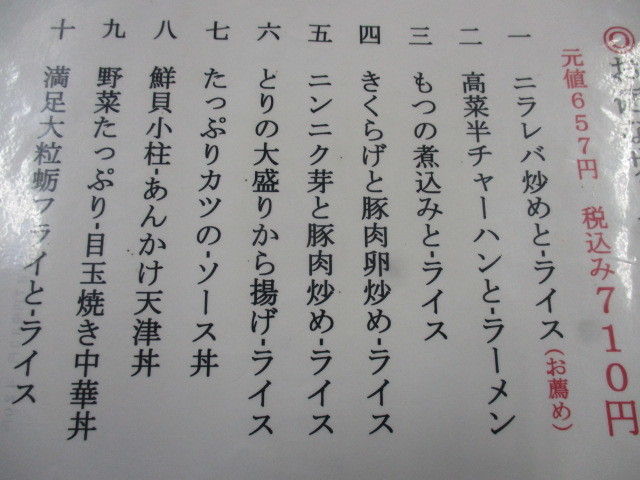 元値657円 税込み710円
一 ニラレバ炒めと-ライス(お薦め)
二 高菜半チャーハンと-ラーメン
三 もつの煮込みと-ライス
四 きくらげと豚肉卵炒め-ライス
五 ニンニク芽と豚肉炒め-ライス
六 とりの大盛りから揚げ-ライス
七 たっぷりカツの-ソース丼
八 鮮貝小柱-あんかけ天津丼
九 野菜たっぷり-目玉焼き中華丼
十 満足大粒蛎フライと-ライス